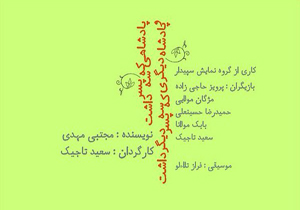 پادشاهی که پسر سه داشت
و پادشاه دیگری که سه پسر دیگر داشت
کاری از گروه نمایش سپیدار
بازیگران : پرویز حاجی زاده
مژگان مولایی
حمیدرضا حسینعلی
بابک مولانا
سعید تاجیک
نویسنده : مجتبی مهدی
کارگردان : سعید تاجیک
موسیقی : فراز